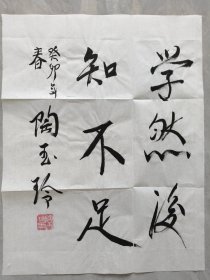 学然後
知不足
癸卯年
春 陶玉玲